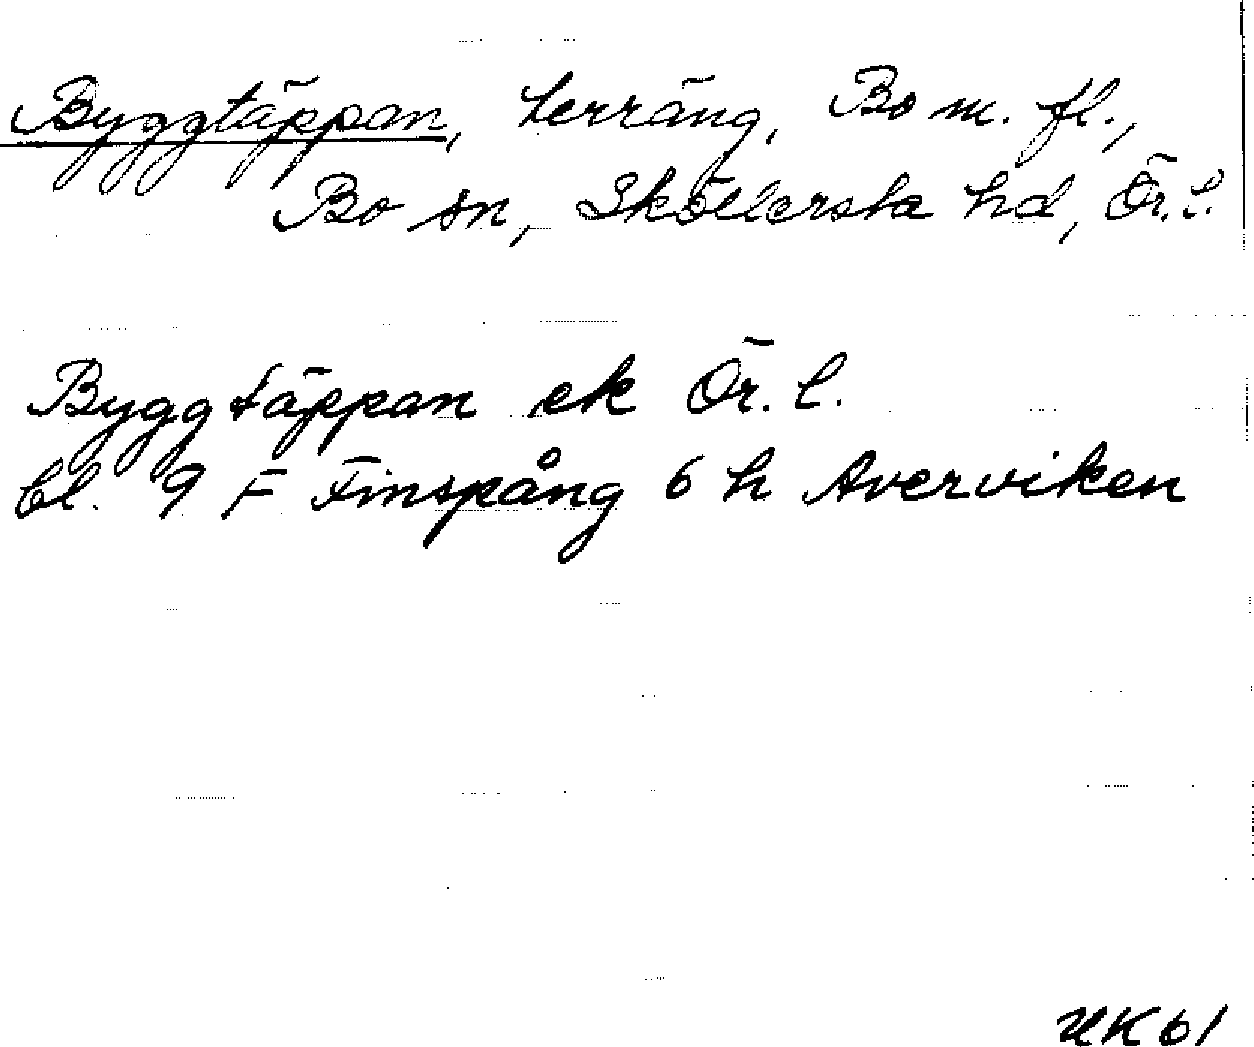 Byggtäppan, terräng, Bo m. fl.,
Bo sn, Sköllersta hd, Ör. l.
Byggtäppan ek Ör. l.
bl. 9 F Finspång 6 h Averviken
UK 61